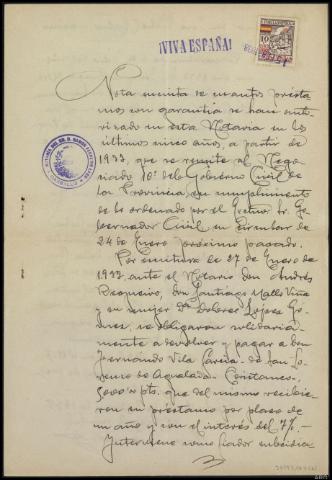 ¡VIVA ESPAÑA!
10
Nota escrita de cuantos présta
mos con garantía se han auto
rizado en esta Notaría en los
últimos cinco años, a partir de
1933, que se remite al Nego
ciado 10º del Gobierno Civil de
la Provincia, en cumplimiento
de lo ordenado por el Excmo. Sr. Go
bernador Civil en Circular de
24 de Enero próximo pasado.
Por escritura de 27 de Enero de
1933 ante el Notario don Andrés
don Santiago Mallo Viña
y su mujer Dª Dolores López
se obligaron solidaria
mente a devolver y pagar a don
Fernando Vila García, de San Lo
renzo de Agualada - Coristanco,
3000'00 pts. que del mismo recibie
ron en préstamo por plazo de
un año y con el interés del 7%.-
Interviene como fiador subsidia